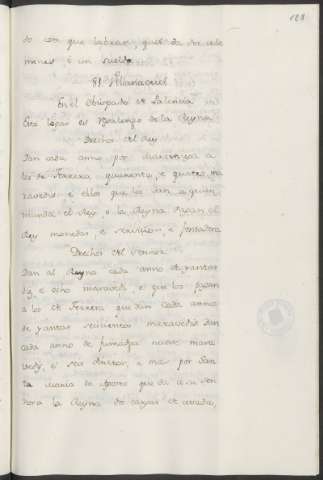 128
do con que labran, quel da dos cele
mines e un sueldo
El Manaquel
En el Obispado de Palencia
Este logar es Realengo de la Reyna
Drechos del Rey
Dan cada anno por martiniega a
los de Ferrera quarenta e quatro ma
ravedis e ellos que los dan a quien
manda el Rey o la Reyna Pagan al
Rey monedas, e servicios, e fonsadera
Drechos del Sennor
Dan al Reyna cada anno de yantar
e ocho maravedis, e que los pagan
a los de Ferrera que dan cada anno
de yantar seicientos maravedis Dan
cada anno de fumadga nueve mara
vedis, e mas por San
ta Maria de Agosto que da a su Sen
nora la Reyna de cargas de cevada,